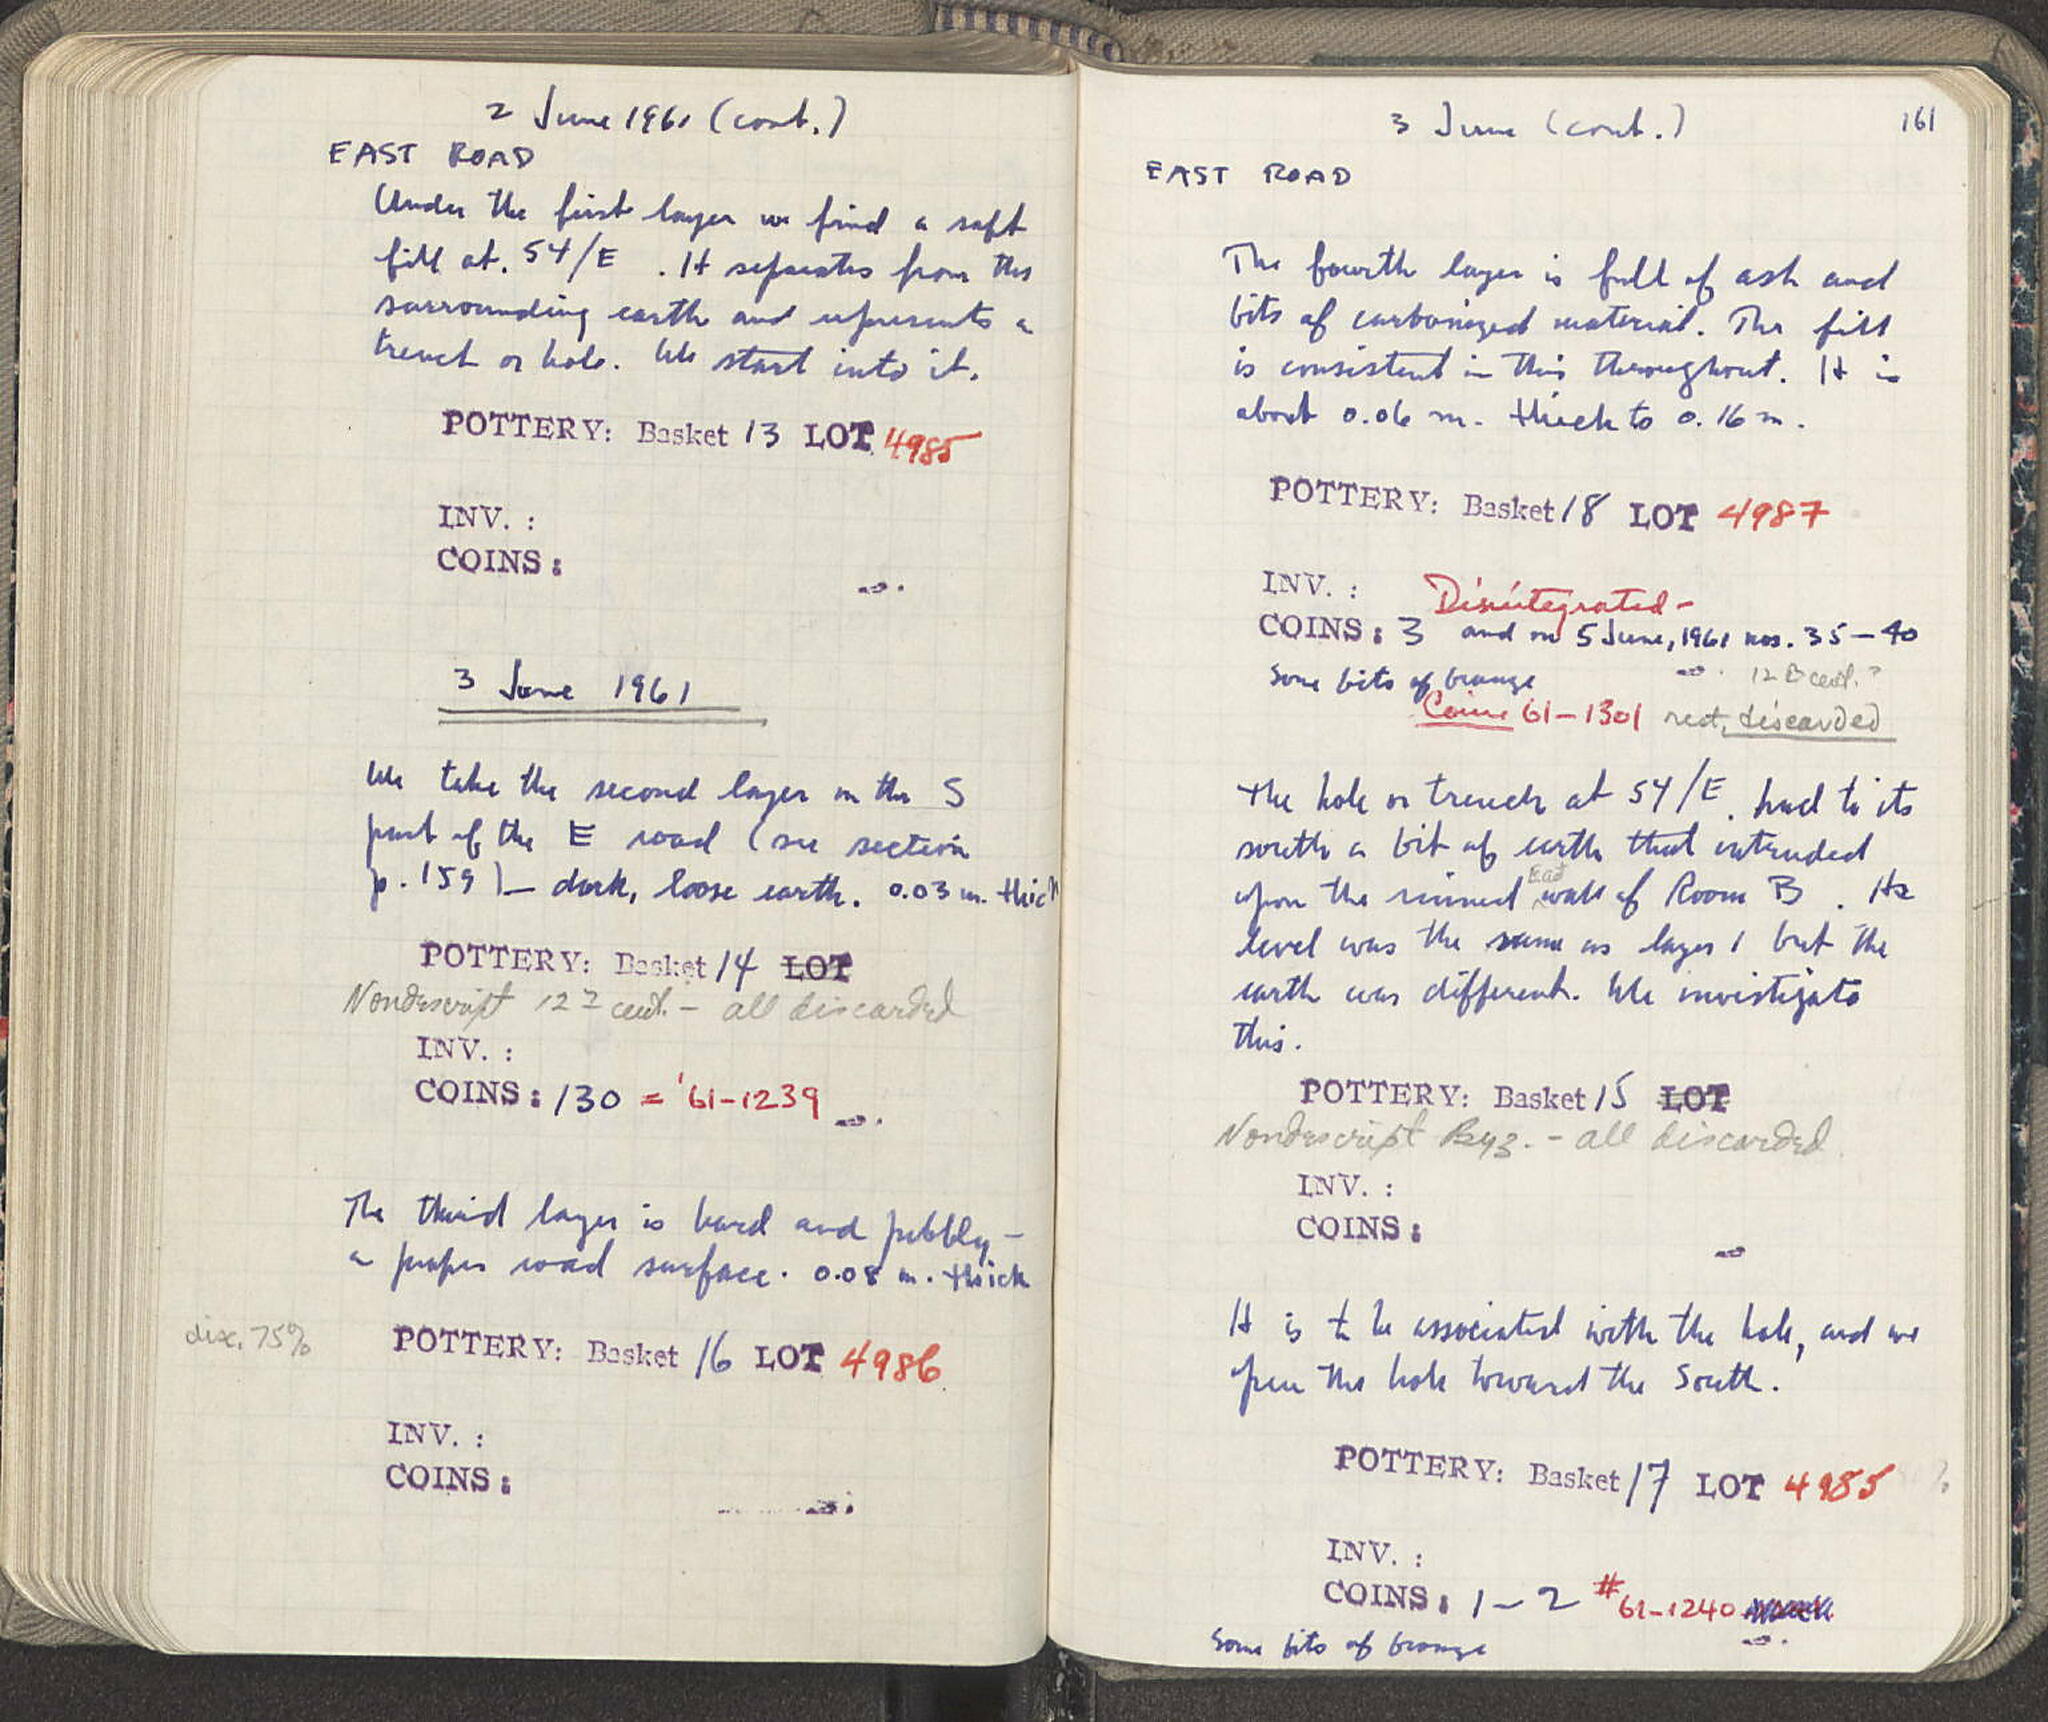 2 June 1961 (cont.)
EAST ROAD
Under the first layer we find a soft
fill at 54/E. It separates from the
surrounding earth and represents a
trench or hole. We start into it.
POTTERY: Basket 13 LOT 4985
INV. :
COINS:
3 June 1961
We take the second layer in the S
part of the E road (see section
p. 159) – dark, loose earth. 0.03 m. thick
POTTERY: Basket 14 LOT
Nondescript 12 cent. – all discarded
INV. :
COINS: 130 = '61-1239
The third layer is hard and pebbly –
a proper road surface. 0.08 m. thick
disc. 75% POTTERY: Basket 16 LOT 4986
INV. :
COINS:
3 June (cont.) 161
EAST ROAD
The fourth layer is full of ash and
bits of carbonized material. The fill
is consistent in this throughout. It is
about 0.06 m. thick to 0.16 m.
POTTERY: Basket 18 LOT 4987
INV. : Disintegrated –
COINS: 3 and on 5 June, 1961 nos. 35–40
Some bits of bronze 12 cent.?
Coins 61-1301 rest, discarded
The hole or trench at 54/E. had to its
south a bit of earth that intruded
upon the ruined East wall of Room B. Its
level was the same as layer 1 but the
earth was different. We investigate
this.
POTTERY: Basket 15 LOT
Nondescript Byz. – all discarded
INV. :
COINS:
It is to be associated with the hole, and we
open the hole toward the South.
POTTERY: Basket 17 LOT 4985
INV. :
COINS: 1–2 # 61-1240
Some bits of bronze